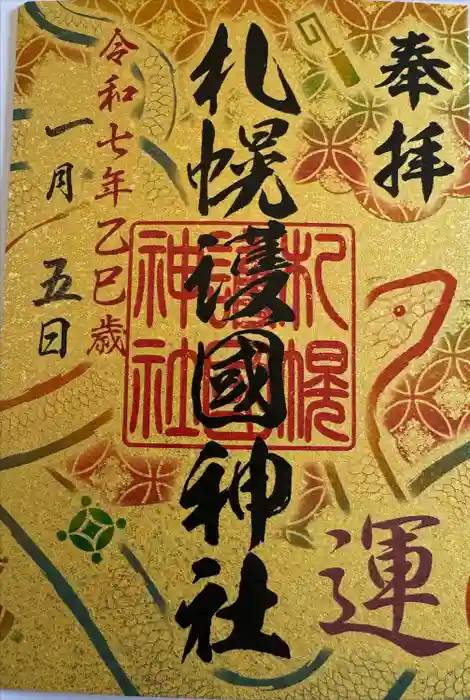 奉拝
運
札幌護國神社
札幌護國神社
令和七年乙巳歳
一月五日